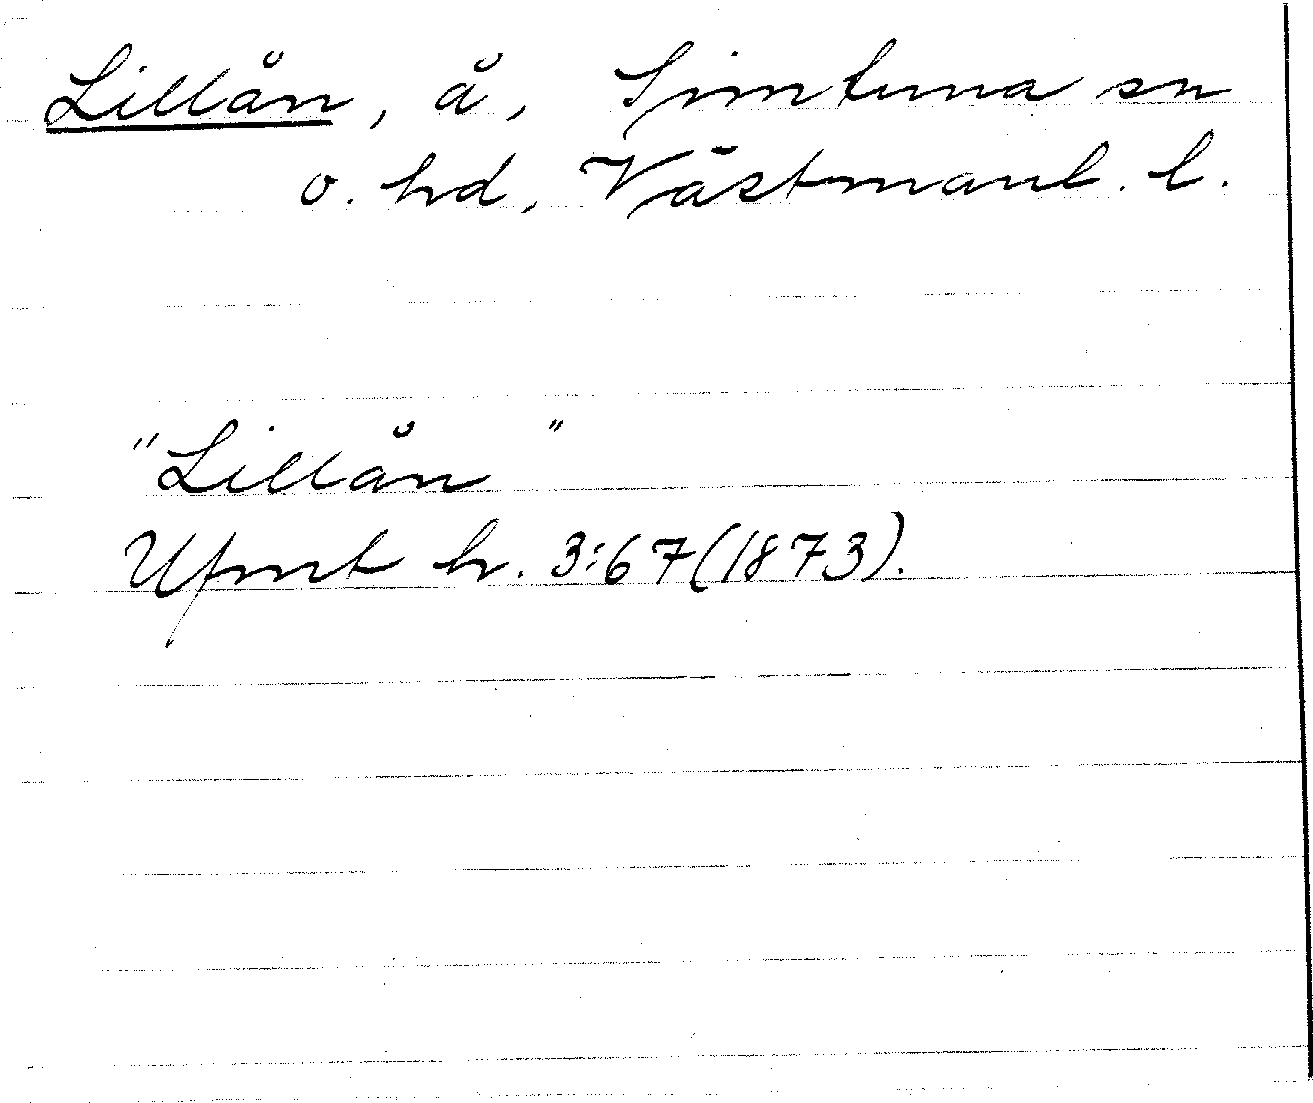 Lillån, å, Simtuna sn
o. hd, Västmanl. l.
"Lillån"
Ufmt h. 3:67 (1873).